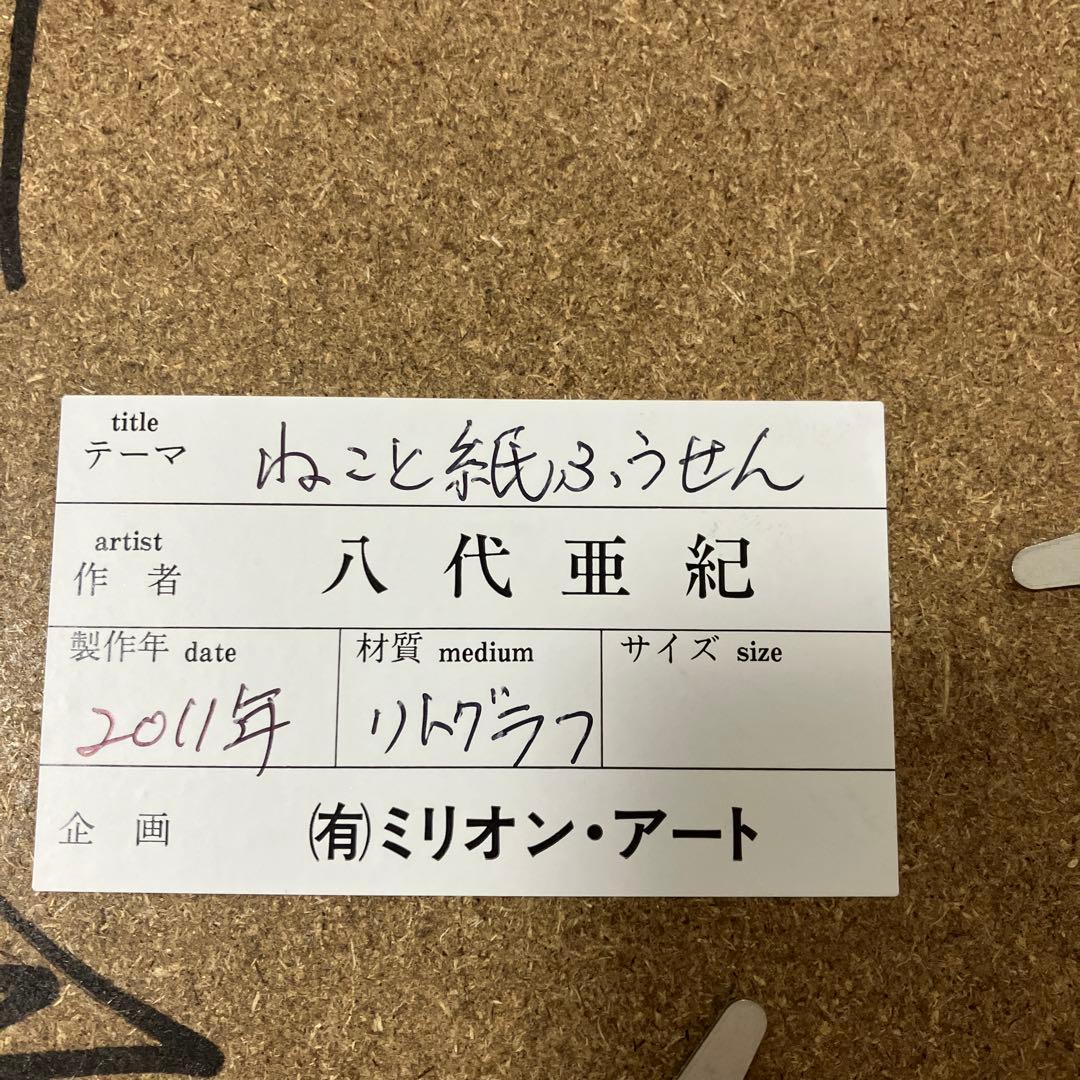 title
テーマ ねこと紙ふうせん
artist
作者 八代亜紀
製作年 date 材質 medium サイズ size
2011年 リトグラフ
企画 ㈲ミリオン・アート